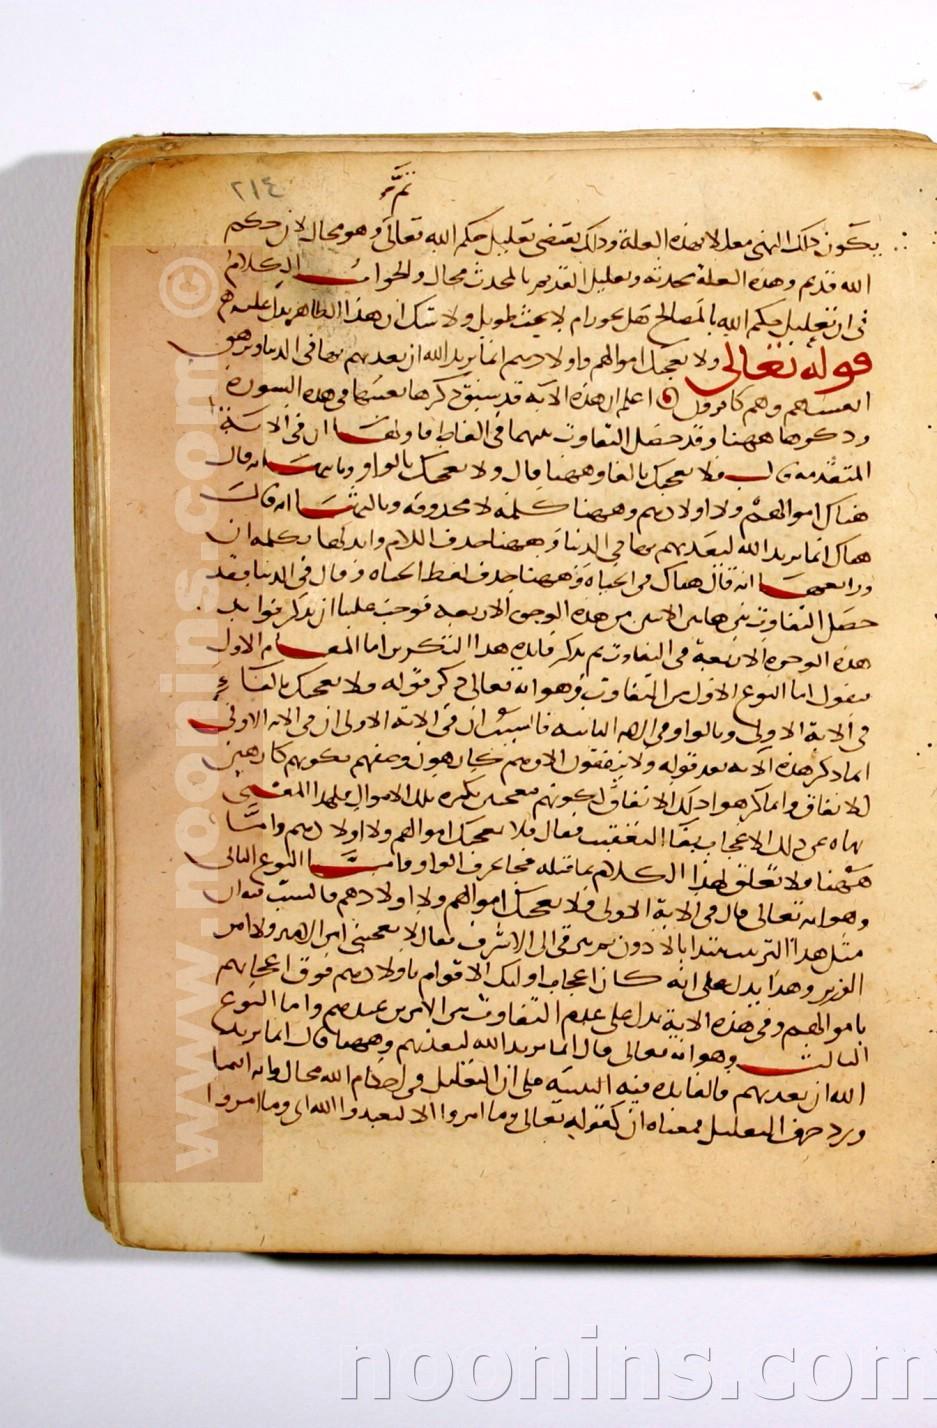 ٢١٤
يكون ذلك النهي معللا بهذه العلة وذلك يقتضي تعليل حكم الله تعالى وهو محال لان حكم
الله قديم وهذه العلة محدثة وتعليل القديم بالمحدث محال والجواب الكلام
في ان تعليل حكم الله بالمصالح هل يجوز ام لا بحث طويل ولا شك ان هذا الظاهر يدل عليه
قوله تعالى ولا تعجبك اموالهم واولادهم انما يريد الله ان يعذبهم بها في الدنيا وتزهق
انفسهم وهم كافرون اعلم ان هذه الاية قد سبق ذكرها بعينها في هذه السورة
وذكرها ههنا وقد حصل التفاوت بينهما في الفاظ فاولها ان في الاية
المتقدمة قال فلا تعجبك بالفا وههنا قال ولا تعجبك بالواو وثانيها انه قال
هناك اموالهم ولا اولادهم وههنا كلمة لا محذوفة وثالثها انه قال
هناك انما يريد الله ليعذبهم بها في الدنيا وههنا حذف اللام وابدلها بكلمة ان
ورابعها انه قال هناك في الحياة وههنا حذف لفظ الحياة وقال في الدنيا فقد
حصل التفاوت بين هاتين الايتين من هذه الوجوه الاربعة فوجب علينا ان نذكر فوايد
هذه الوجوه الاربعة في التفاوت ثم نذكر فايدة هذا التكرير اما المقام الاول
فنقول اما النوع الاول من التفاوت فهو انه تعالى ذكر قوله ولا تعجبك بالفاء
في الاية الاولى وبالواو في الاية الثانية فالسبب ان في الاية الاولى ان في الاية الاولى
انما ذكر هذه الاية بعد قوله ولا ينفقون الا وهم كارهون وصفهم بكونهم كارهين
للانفاق وانما كرهوا ذلك الانفاق لكونهم معجبين بكثرة تلك الاموال فلهذا المعنى
نهاه عن ذلك الاعجاب بفا التعقيب فقال فلا تعجبك اموالهم ولا اولادهم واما
ههنا ولا تعلق لهذا الكلام بما قبله فجا بحرف الواو واما النوع الثاني
وهو انه تعالى قال في الاية الاولى فلا تعجبك اموالهم ولا اولادهم فالسبب فيه ان
مثل هذا الترتيب يبتدا بالادون ثم يترقى الى الاشرف فيقال لا يعجبني امر الامير ولا امر
الوزير وهذا يدل على انه كان اعجاب اوليك الاقوام باولادهم فوق اعجابهم
باموالهم وفي هذه الاية يدل على عدم التفاوت بين الامرين عندهم واما النوع
الثالث وهو انه تعالى قال انما يريد الله ليعذبهم وههنا قال انما يريد
الله ان يعذبهم فالفايدة فيه التنبيه على ان التعليل في احكام الله محال وانه اينما
ورد حرف التعليل فمعناه ان كقوله تعالى وما امروا الا ليعبدوا الله اي وما امروا
www.noonins.com ©
noonins.com